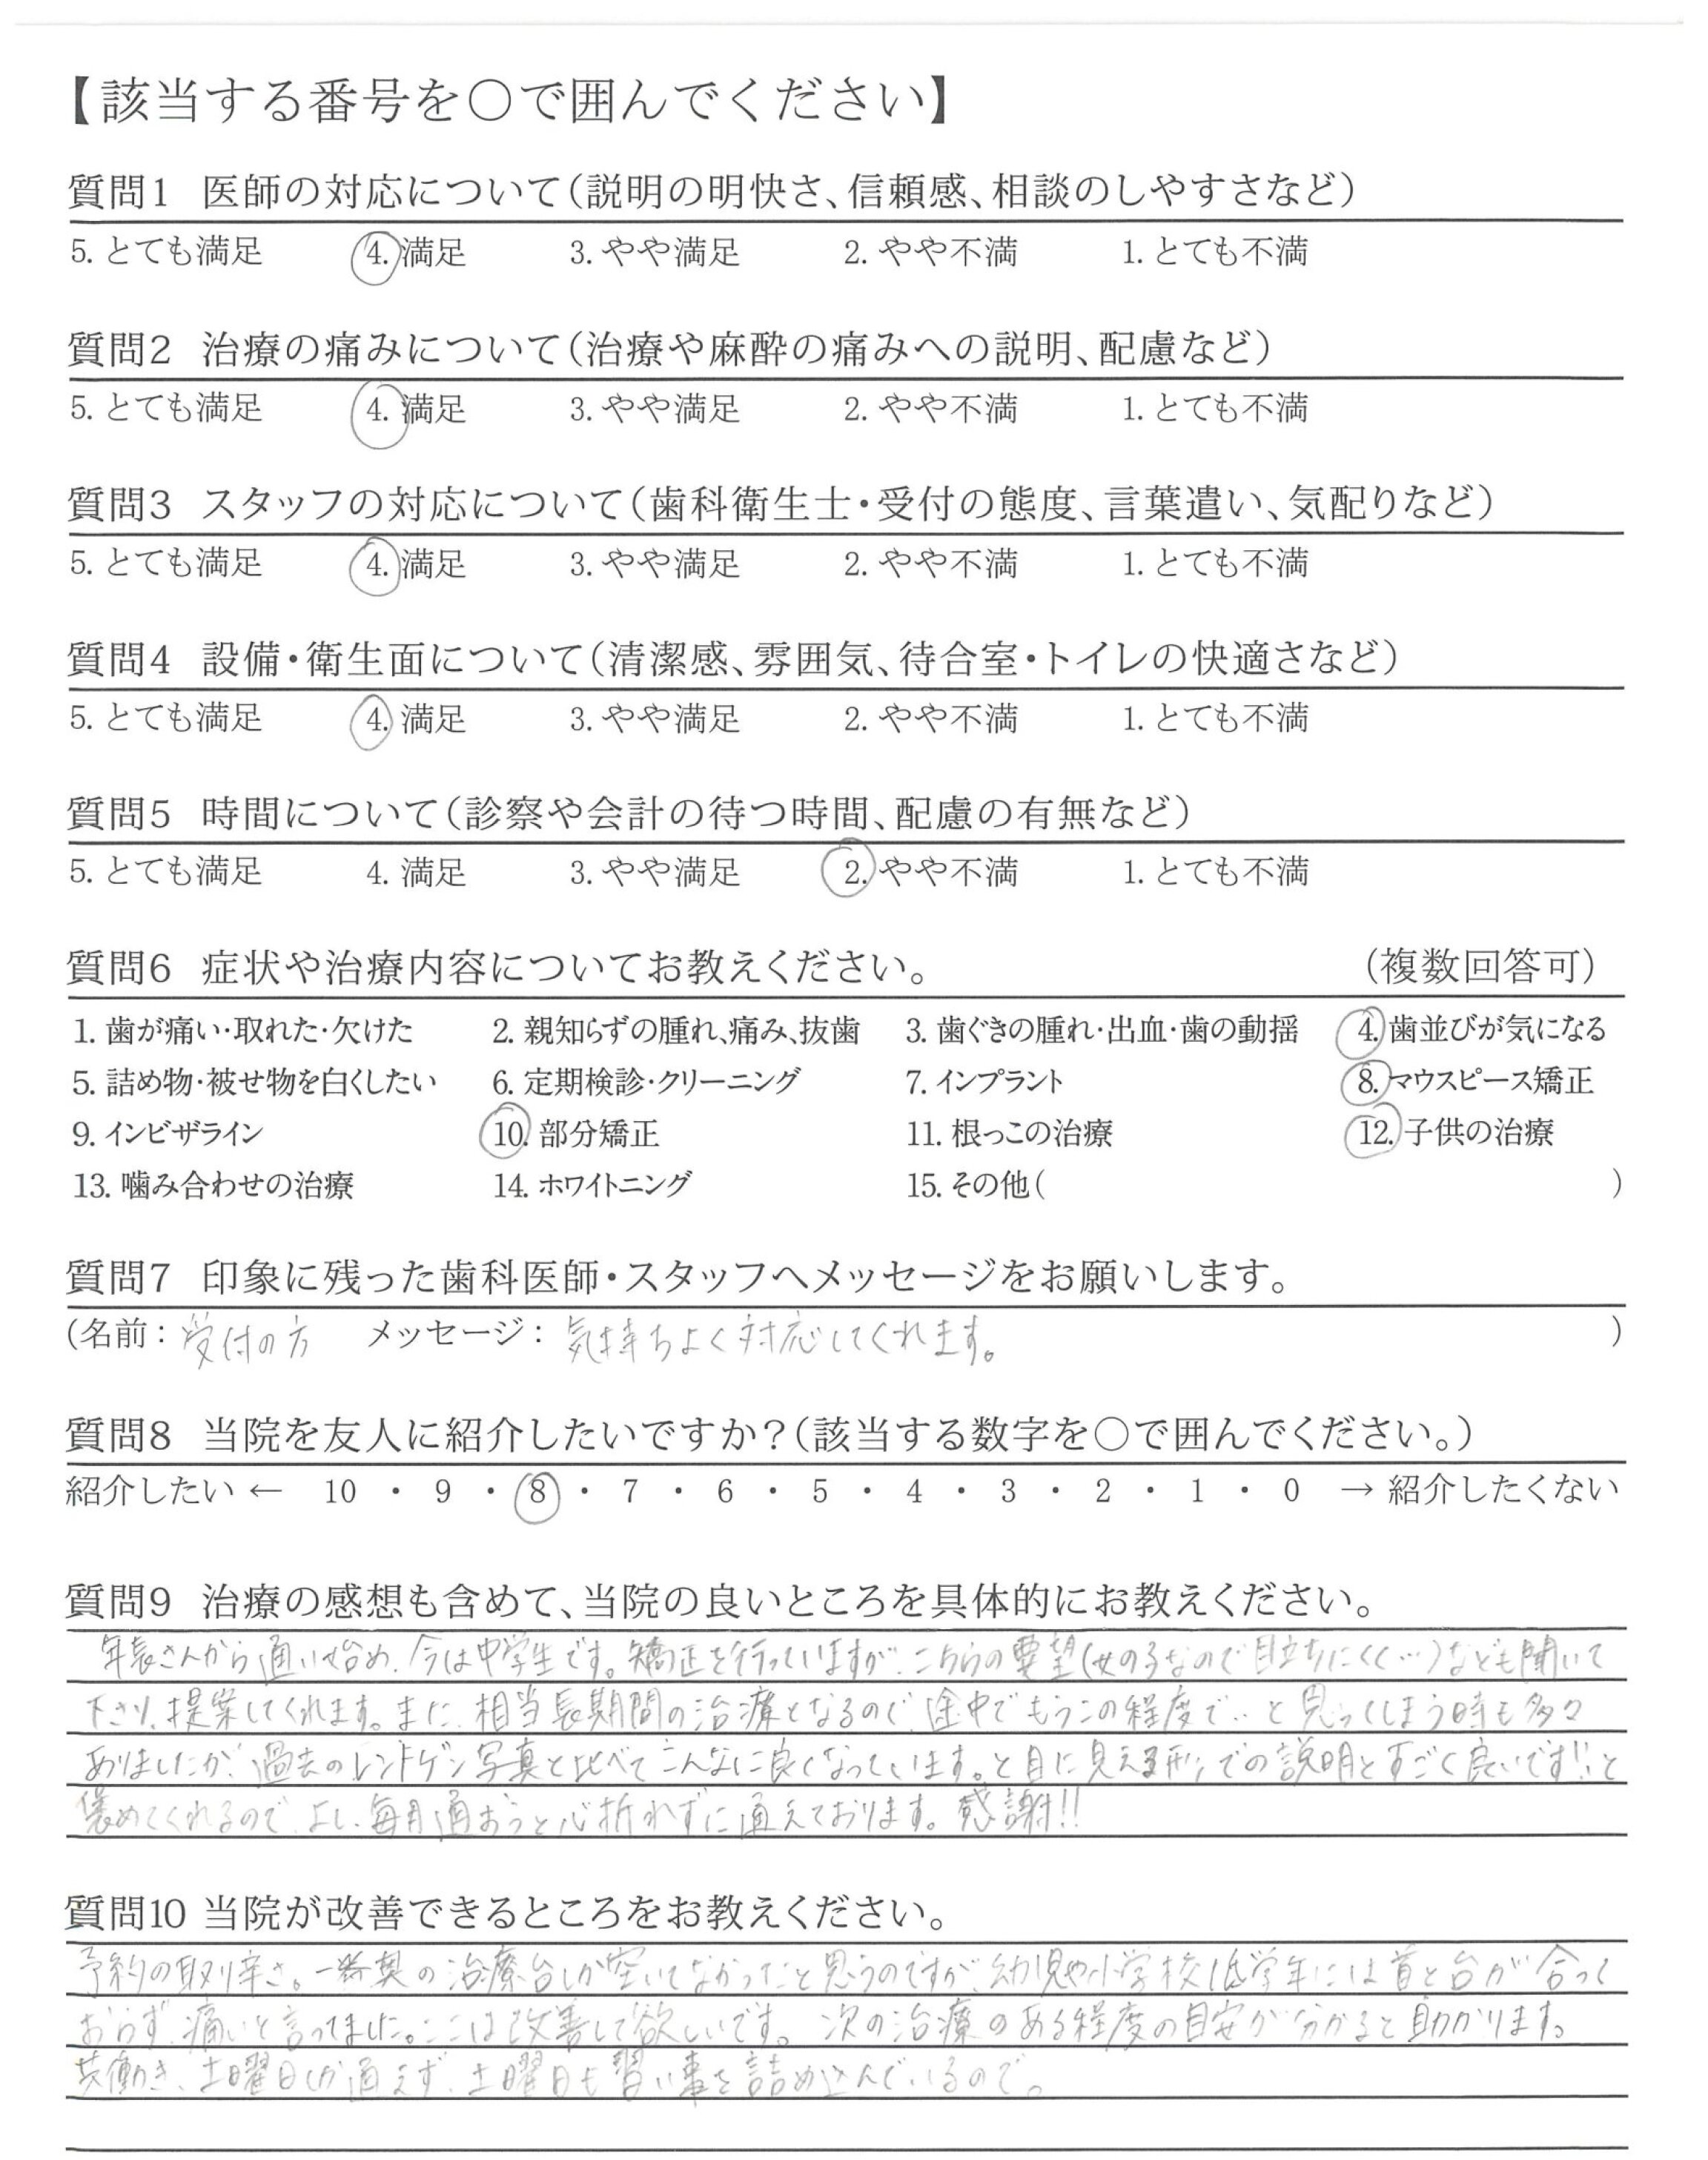 【該当する番号を○で囲んでください】
質問1 医師の対応について(説明の明快さ、信頼感、相談のしやすさなど)
5. とても満足 4. 満足 3. やや満足 2. やや不満 1. とても不満
質問2 治療の痛みについて(治療や麻酔の痛みへの説明、配慮など)
5. とても満足 4. 満足 3. やや満足 2. やや不満 1. とても不満
質問3 スタッフの対応について(歯科衛生士・受付の態度、言葉遣い、気配りなど)
5. とても満足 4. 満足 3. やや満足 2. やや不満 1. とても不満
質問4 設備・衛生面について(清潔感、雰囲気、待合室・トイレの快適さなど)
5. とても満足 4. 満足 3. やや満足 2. やや不満 1. とても不満
質問5 時間について(診察や会計の待つ時間、配慮の有無など)
5. とても満足 4. 満足 3. やや満足 2. やや不満 1. とても不満
質問6 症状や治療内容についてお教えください。 (複数回答可)
1. 歯が痛い・取れた・欠けた 2. 親知らずの腫れ、痛み、抜歯 3. 歯ぐきの腫れ・出血・歯の動揺 4. 歯並びが気になる
5. 詰め物・被せ物を白くしたい 6. 定期検診・クリーニング 7. インプラント 8. マウスピース矯正
9. インビザライン 10. 部分矯正 11. 根っこの治療 12. 子供の治療
13. 噛み合わせの治療 14. ホワイトニング 15. その他( )
質問7 印象に残った歯科医師・スタッフへメッセージをお願いします。
(名前: 受付の方 メッセージ: 気持ちよく対応してくれます。 )
質問8 当院を友人に紹介したいですか?(該当する数字を○で囲んでください。)
紹介したい ← 10 ・ 9 ・ 8 ・ 7 ・ 6 ・ 5 ・ 4 ・ 3 ・ 2 ・ 1 ・ 0 → 紹介したくない
質問9 治療の感想も含めて、当院の良いところを具体的にお教えください。
年長さんから通い始め、今は中学生です。矯正を行っていますが、こちらの要望(女の子なので目立ちにくく…)なども聞いて
下さり、提案してくれます。また、相当長期間の治療となるので、途中でもうこの程度で‥と思ってしまう時も多々
ありましたが、過去のレントゲン写真と比べてこんなに良くなっています。と目に見える形での説明とすごく良いです!!と
褒めてくれるので、よし、毎月通おうと心折れずに通えております。感謝!!
質問10 当院が改善できるところをお教えください。
予約の取り辛さ。一番奥の治療台しか空いてなかったと思うのですが、幼児や小学校低学年には首と台が合って
おらず、痛いと言ってました。ここは改善して欲しいです。次の治療のある程度の目安が分かると助かります。
共働き、土曜日しか通えず、土曜日も習い事を詰め込んでいるので。